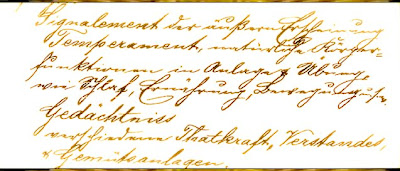 Signalement der äußern Erscheinung
Temperament, natürliche Körper=
funktionen in Anlage & Übung,
wie Schlaf, Ernährung, Bewegung usw.
Gedächtniss
verschiedene Thatkraft, Verstandes,
& Gemütsanlagen.